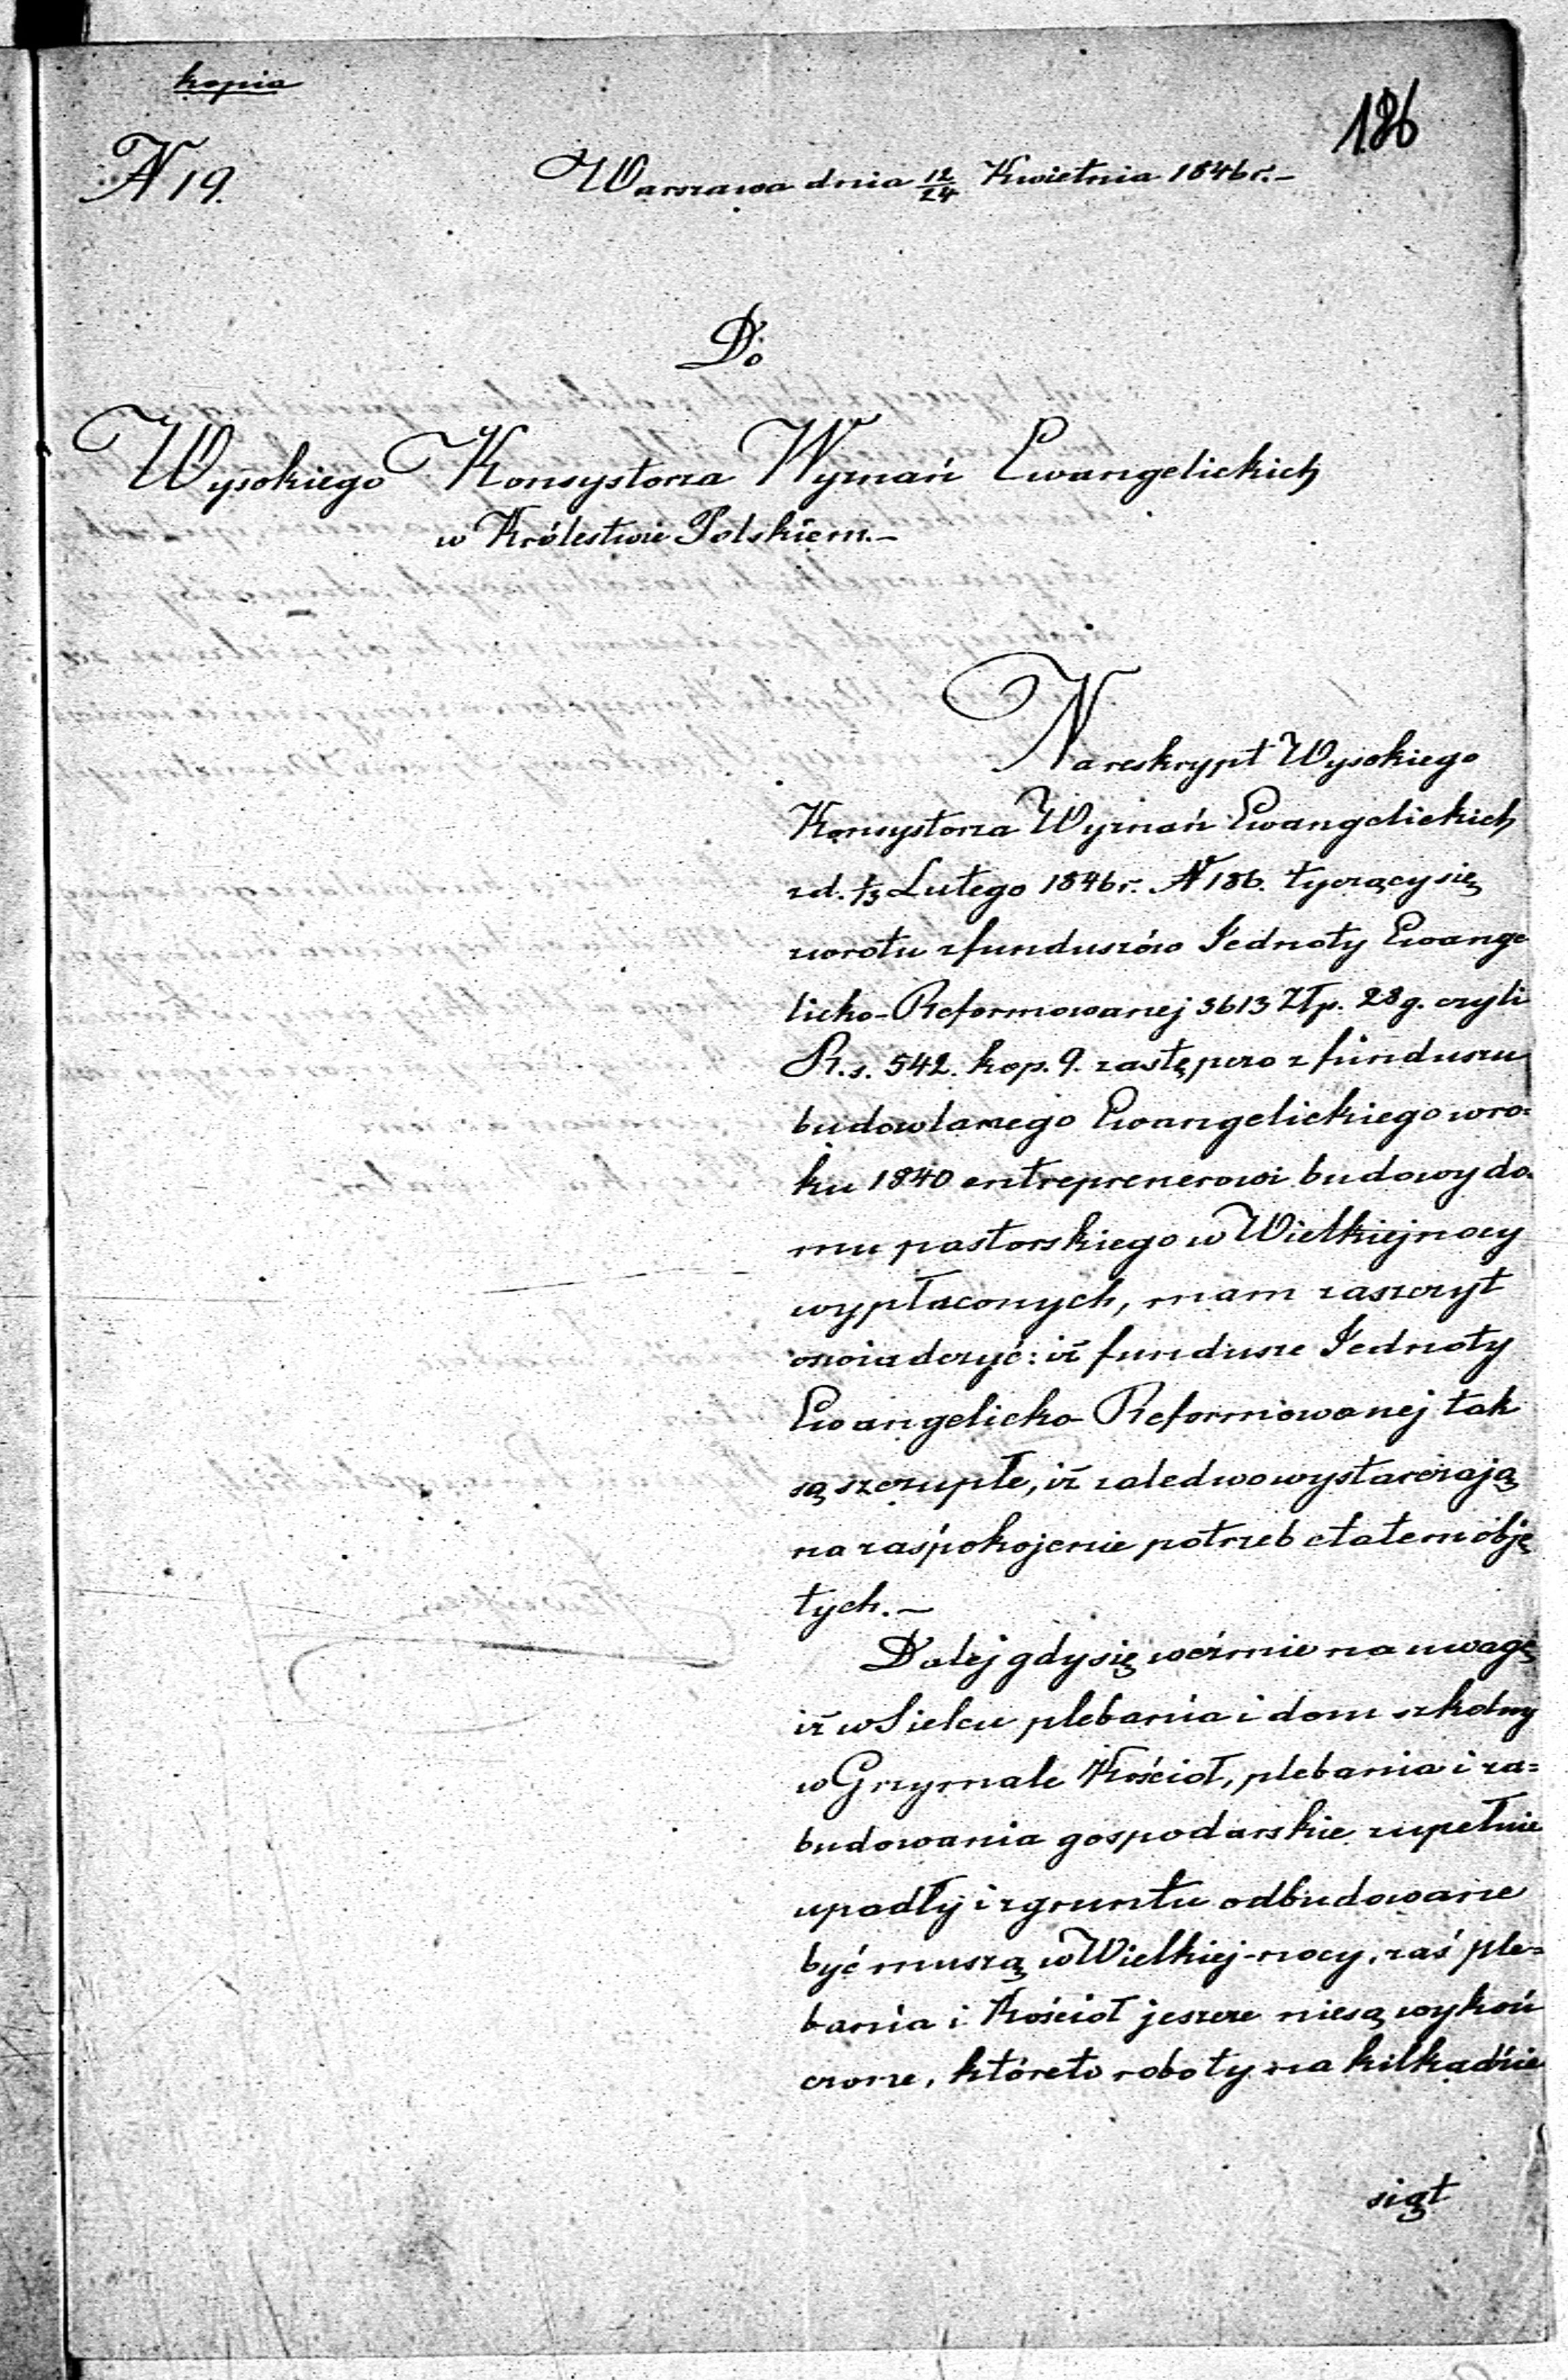 kopia
186
N 19.
Warszawa dnia 12/24 Kwietnia 1846 r.–
Do
Wysokiego Konsystorza Wyznań Ewangelickich
w Królestwie Polskiem.–
Na reskrypt Wysokiego
Konsystorza Wyznań Ewangelickich
z d. 1/13 Lutego 1846 r. N 186. tyczący się
zwrotu z funduszów Jednoty Ewange
licko-Reformowanej 3613 Złp. 28 g. czyli
R.s. 542. kop. 9. zastępczo z funduszu
budowlanego Ewangelickiego w ro=
ku 1840 entreprenerowi budowy do=
mu pastorskiego w Wielkiejnocy
wypłaconych, mam zaszczyt
oświadczyć: iż fundusze Jednoty
Ewangelicko-Reformowanej tak
są szczupłe, iż zaledwo wystarczają
na zaspokojenie potrzeb etatem obję
tych.–
Dalej gdy się weźmie na uwagę
iż w Sielcu plebania i dom szkolny
w Grzymale Kościoł, plebania i za=
budowania gospodarskie zupełnie
upadły i z gruntu odbudowane
być muszą w Wielkiej-nocy, zaś ple=
bania i Kościoł jeszcze nie są wykoń
czone, któreto roboty na kilkadzie
siąt